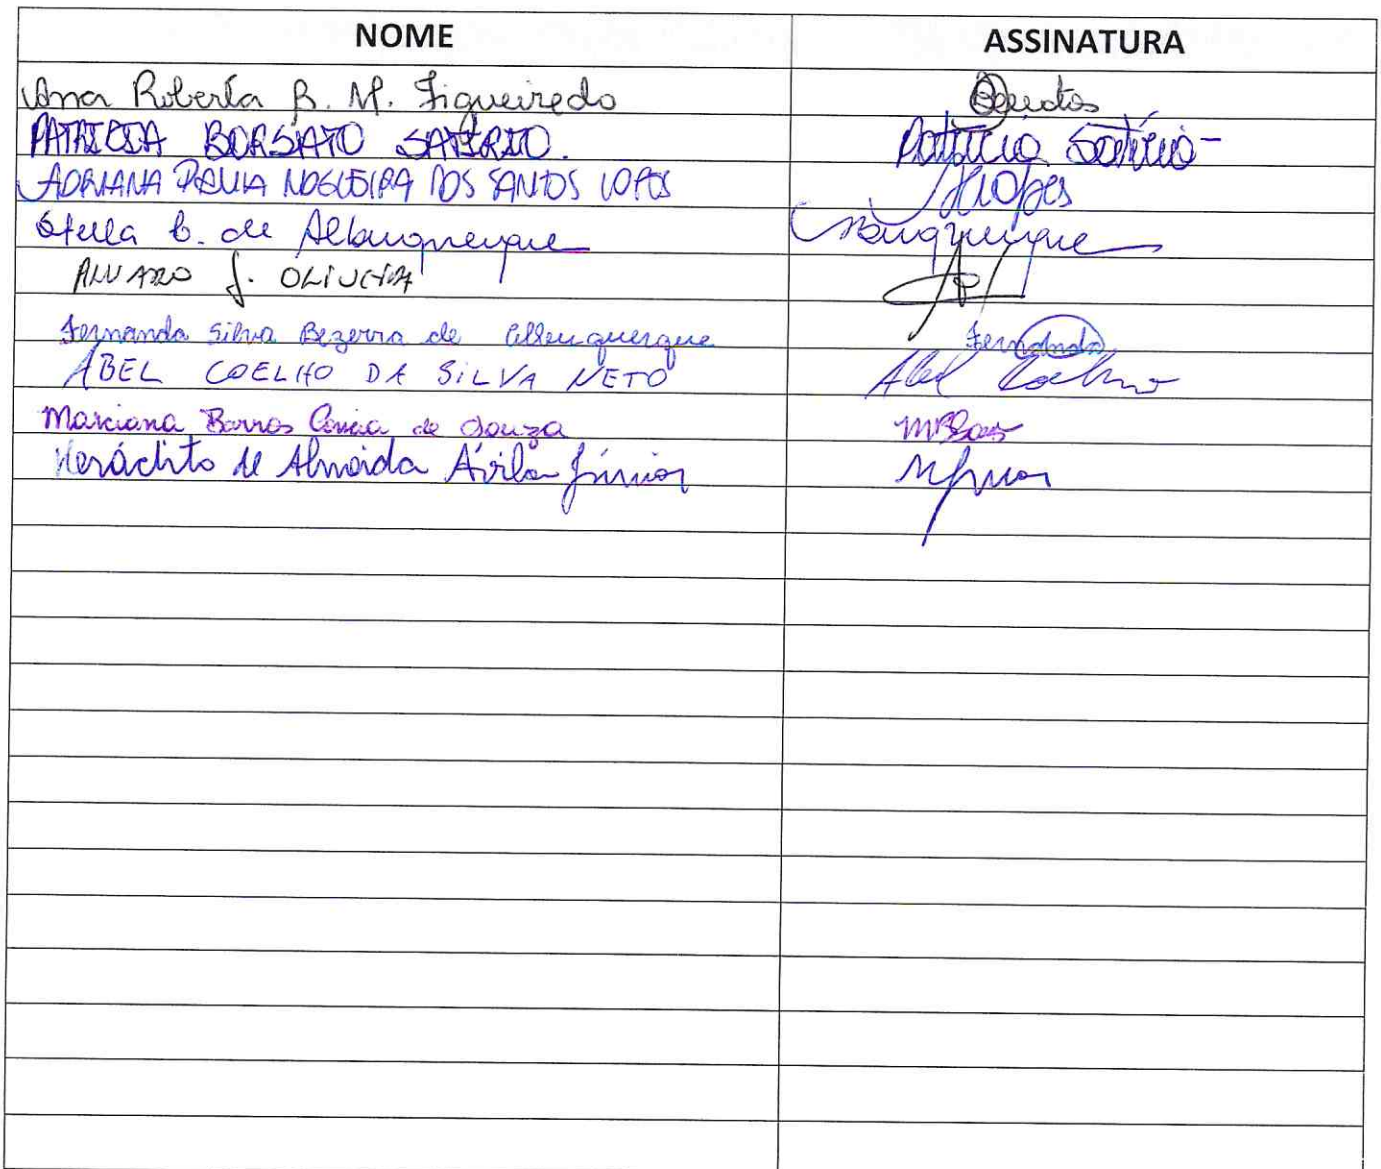 NOME ASSINATURA
Ana Roberta B. M. Figueiredo
PATRICIA BORSATO SATIRIO. Patricia Satirio
ADRIANA PAULA NOGUEIRA DOS SANTOS LOPES Lopes
Stella C. de Albuquerque Albuquerque
ALVARO J. OLIVEIRA
Fernanda Silva Bezerra de Albuquerque Fernanda
ABEL COELHO DA SILVA NETO Abel Coelho
Marciana Barros Correia de Souza
Heráclito de Almeida Ávila Júnior